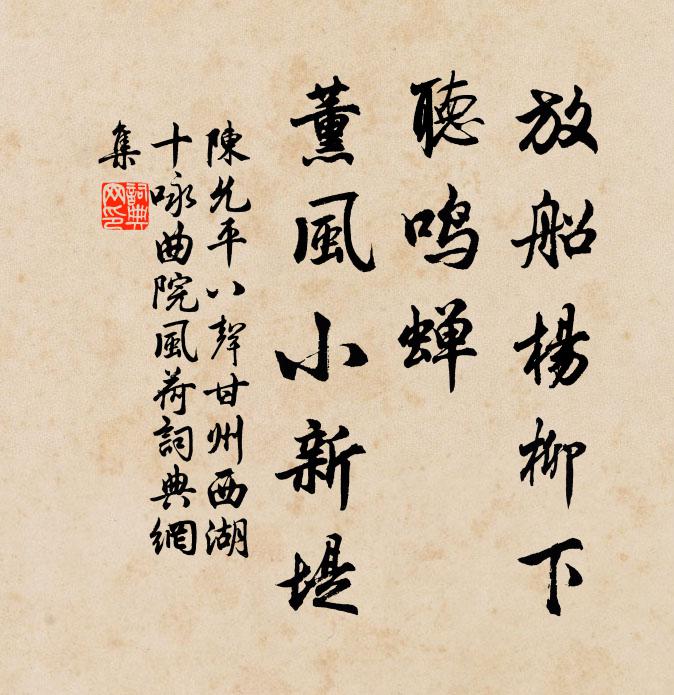 放船楊柳下
聽鸣蝉
薰風小新堤
陳允平八聲甘州西湖
十咏曲院風荷詞典網
集
詞典
网印